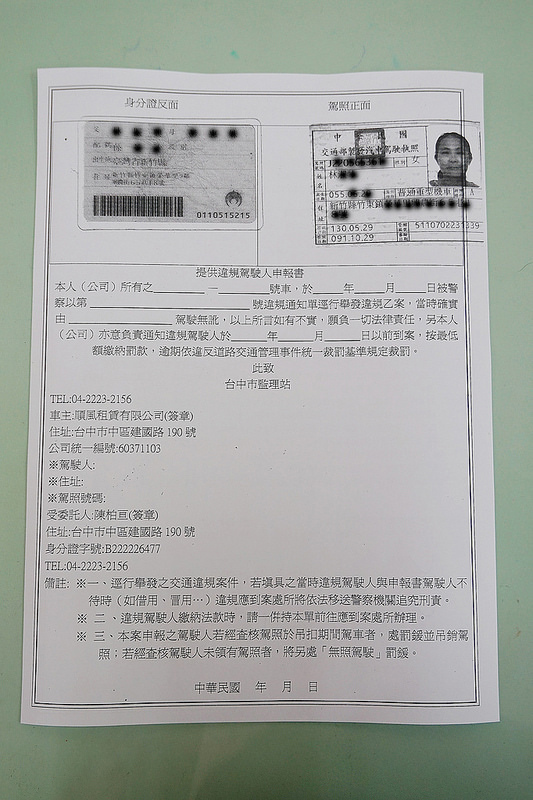 身分證反面
駕照正面
父 母
配偶 役別
出生地 臺灣省新竹縣
住址
0110515215
中 華 民 國
交通部製發汽車駕駛執照
性別 女
林
055.05.29
普通重型機車
住址 新竹縣竹東鎮
130.05.29
091.10.29
5110702231339
提供違規駕駛人申報書
本人（公司）所有之________－________號車，於____年____月____日被警
察以第________________號違規通知單逕行舉發違規乙案，當時確實
由________________駕駛無訛，以上所言如有不實，願負一切法律責任，另本人
（公司）亦意負責通知違規駕駛人於____年____月____日以前到案，按最低
額繳納罰款，逾期依違反道路交通管理事件統一裁罰基準規定裁罰。
此致
台中市監理站
TEL:04-2223-2156
車主:順風租賃有限公司(簽章)
住址:台中市中區建國路 190 號
公司統一編號:60371103
※駕駛人:
※住址:
※駕照號碼:
受委託人:陳柏亘(簽章)
住址:台中市中區建國路 190 號
身分證字號:B222226477
TEL:04-2223-2156
備註: ※一、逕行舉發之交通違規案件，若填具之當時違規駕駛人與申報書駕駛人不
待時（如借用、冒用…）違規應到案處所將依法移送警察機關追究刑責。
※ 二、違規駕駛人繳納法款時，請一併持本單前往應到案處所辦理。
※ 三、本案申報之駕駛人若經查核駕照於吊扣期間駕車者，處罰鍰並吊銷駕
照；若經查核駕駛人未領有駕照者，將另處「無照駕駛」罰鍰。
中華民國 年 月 日